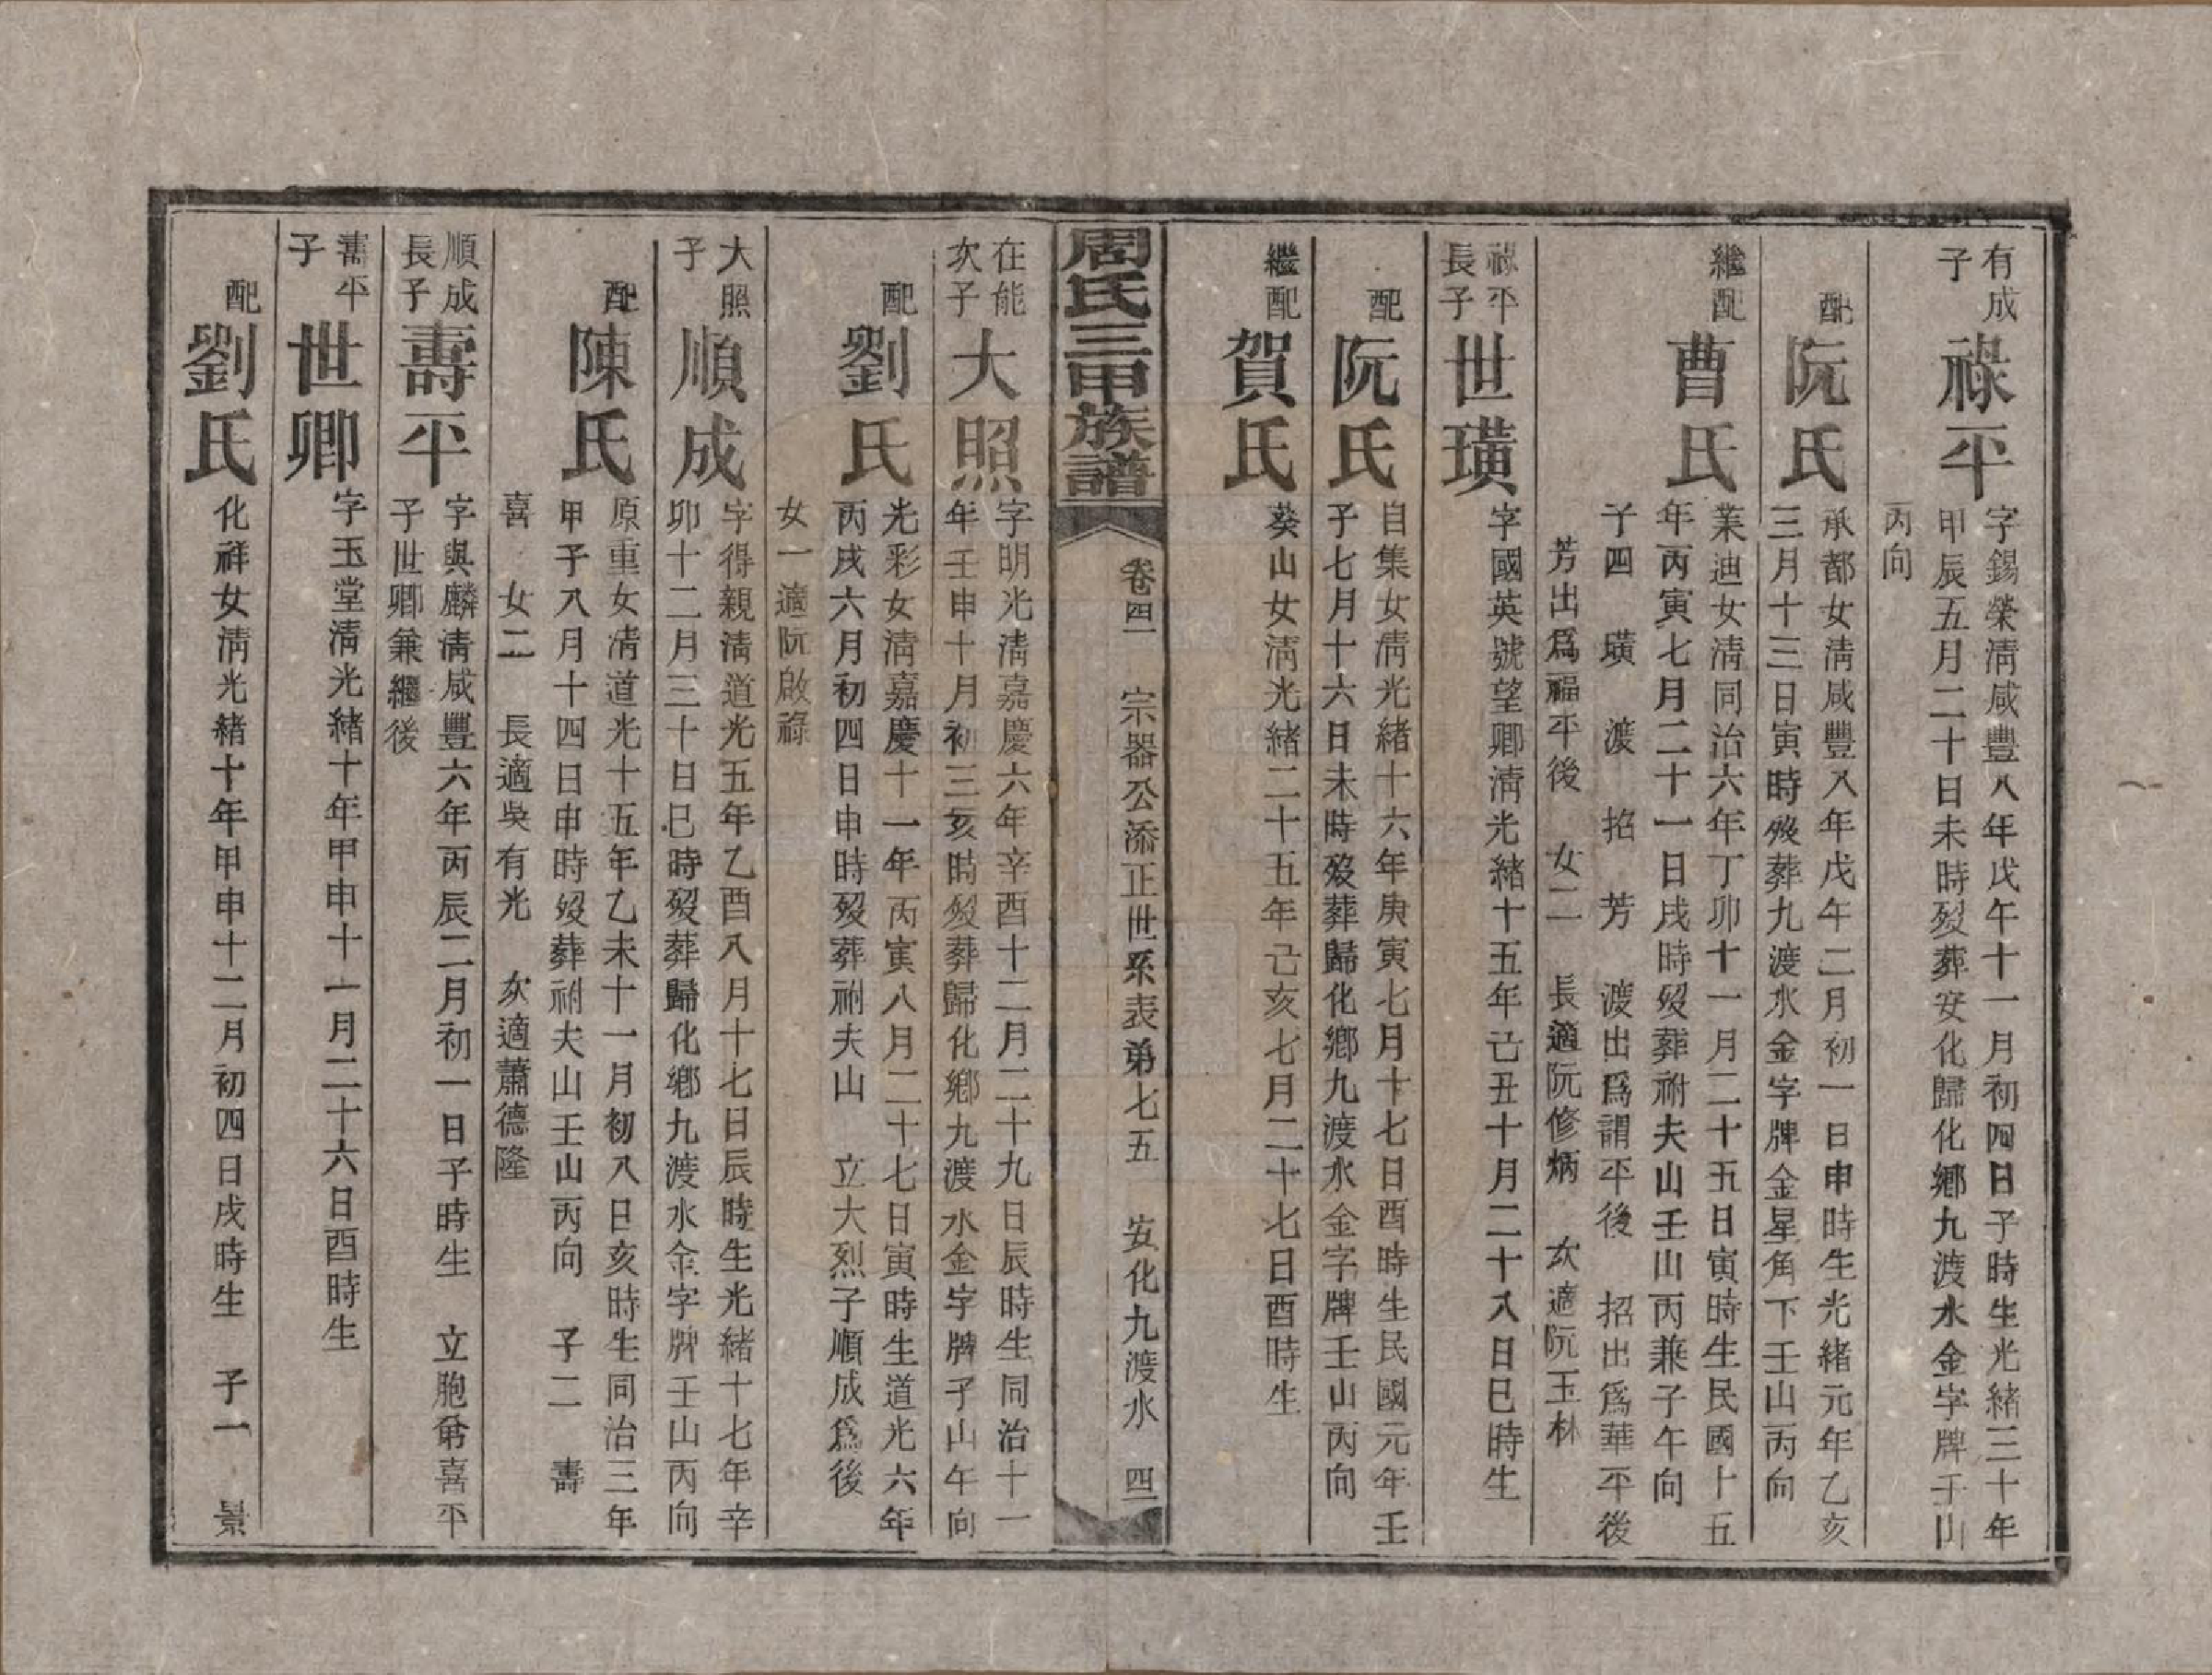 有成
子
祿平
字錫榮淸咸豐八年戊午十一月初四日子時生光緒三十年
甲辰五月二十日未時歿葬安化歸化鄉九渡水金字牌子山
丙向
配
阮氏
承都女淸咸豐八年戊午二月初一日申時生光緒元年乙亥
三月十三日寅時歿葬九渡水金字牌金星角下壬山丙向
繼配
曹氏
業迪女淸同治六年丁卯十一月二十五日寅時生民國十五
年丙寅七月二十一日戌時歿葬祔夫山壬山丙兼子午向
子四 璜 渡 招 芳 渡出爲謂平後 招出爲華平後
芳出爲福平後 女二 長適阮修炳 次適阮玉林
祿平
長子
世璜
字國英號望卿淸光緒十五年己丑十月二十八日巳時生
配
阮氏
自集女淸光緒十六年庚寅七月十七日酉時生民國元年壬
子七月十六日未時歿葬歸化鄉九渡水金字牌壬山丙向
繼配
賀氏
葵山女淸光緒二十五年己亥七月二十七日酉時生
周氏三甲族譜
卷四 宗器公添正世系表弟七五 安化九渡水 四
在能
次子
大照
字明光淸嘉慶六年辛酉十二月二十九日辰時生同治十一
年壬申十月初三亥時歿葬歸化鄉九渡水金字牌子山午向
配
劉氏
光彩女淸嘉慶十一年丙寅八月二十七日寅時生道光六年
丙戌六月初四日申時歿葬祔夫山 立大烈子順成爲後
女一適阮啟祿
大照
子
順成
字得親淸道光五年乙酉八月十七日辰時生光緒十七年辛
卯十二月三十日巳時歿葬歸化鄉九渡水金字牌壬山丙向
配
陳氏
原重女淸道光十五年乙未十一月初八日亥時生同治三年
甲子八月十四日申時歿葬祔夫山壬山丙向 子二 壽
喜 女二 長適吳有光 次適蕭德隆
順成
長子
壽平
字與麟淸咸豐六年丙辰二月初一日子時生 立胞弟喜平
子世卿兼繼後
壽平
子
世卿
字玉堂淸光緒十年甲申十一月二十六日酉時生
配
劉氏
化祥女淸光緒十年甲申十二月初四日戌時生 子一 景